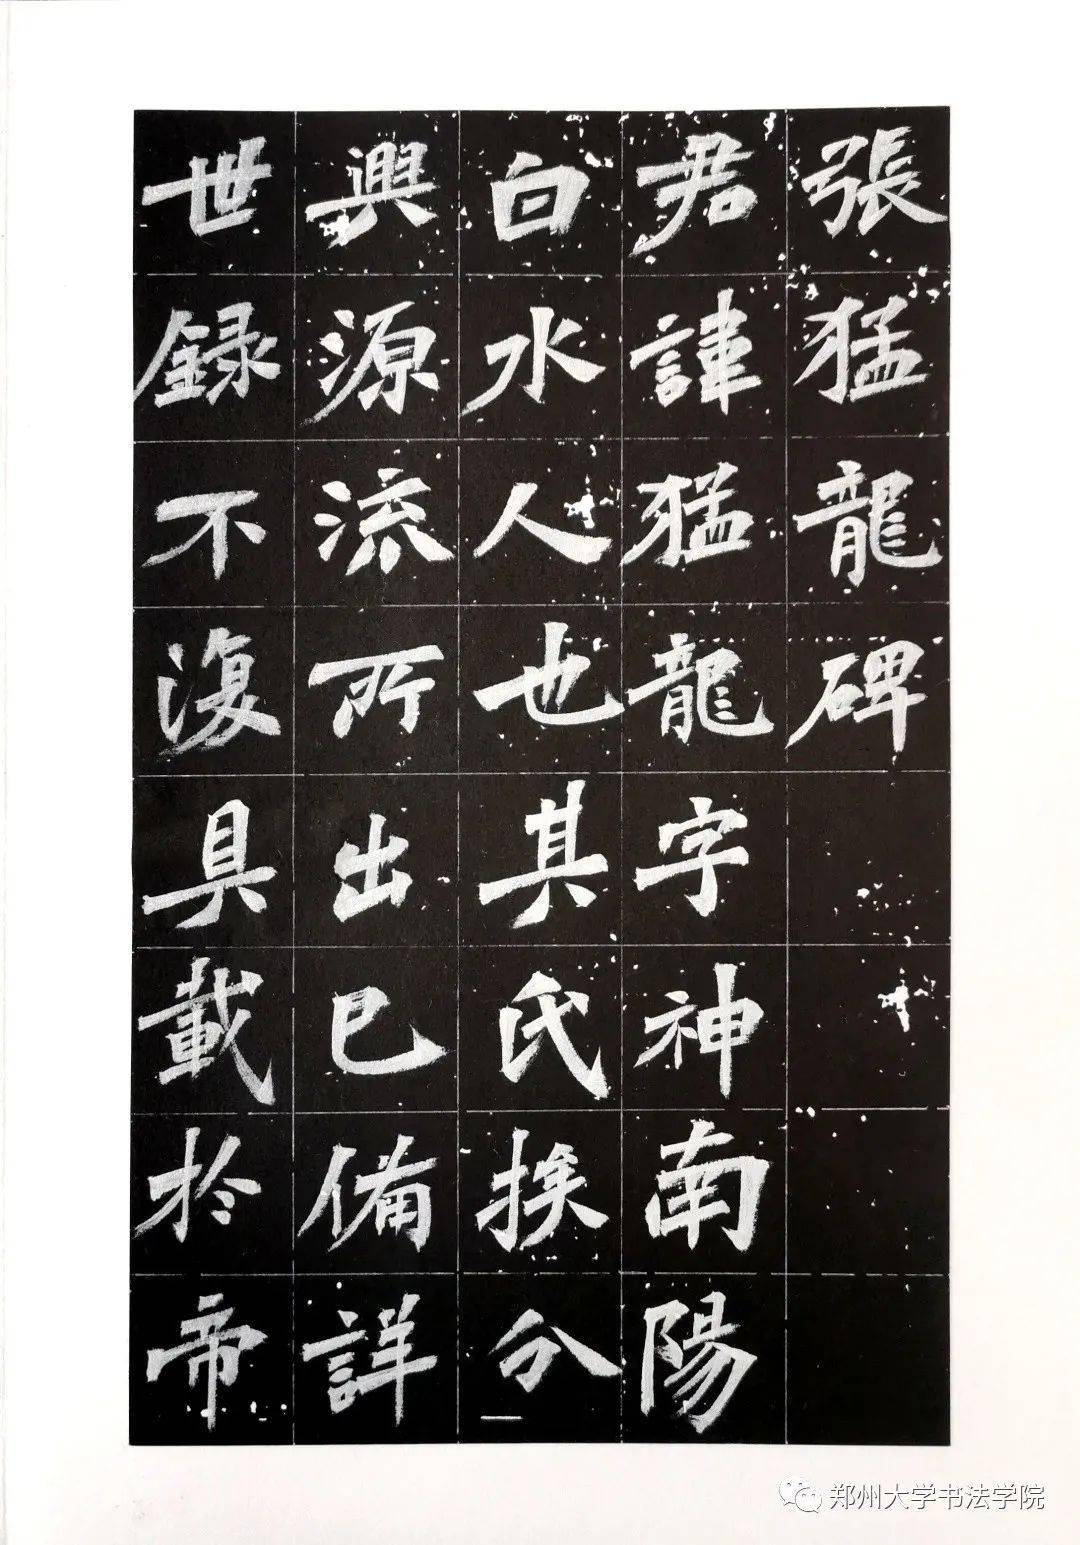 張猛龍碑
君諱猛龍字神南陽
白水人也其氏族分
興源流所出已備詳
世録不復具載於帝
郑州大学书法学院